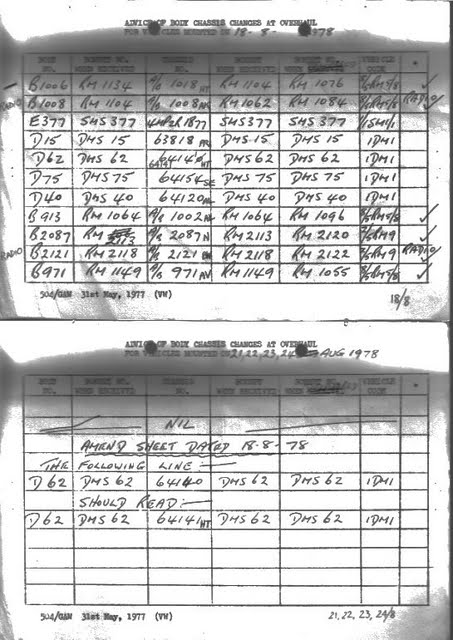 ADVICE OF BODY CHASSIS CHANGES AT OVERHAUL
FOR VEHICLES MOUNTED ON 18-8-1978
BODY NO. BONNET NO. WHEN RECEIVED CHASSIS NO. BONNET WHEN RECEIVED BONNET NO. WHEN VEHICLE CODE *
B1006 RM 1134 A/S 1018 HT RM 1104 RM 1076 2/5RM5/8 ✓
RADIO B1008 RM 1104 A/S 1008 AR RM1062 RM 1084 2/5RM5/8 RADIO ✓
E377 SMS 377 1877 SMS 377 SMS 377 1/SM1/1
D15 DMS 15 63818 AR DMS 15 DMS 15 1DM1
D62 DMS 62 64141 64140 HT DMS 62 DMS 62 1DM1
D75 DMS 75 64154 SE DMS 75 DMS 75 1DM1
D40 DMS 40 64120 DMS 40 DMS 40 1DM1
B913 RM 1064 A/S 1002 AR RM 1064 RM 1096 2/5RM5/8 ✓
B2087 RM 2113 A/S 2087 N RM 2113 RM 2120 7/5RM9 ✓
RADIO B2121 RM 2118 A/S 2121 RM 2118 RM 2122 7/5RM9 RADIO ✓
B971 RM 1149 A/S 971 AV RM 1149 RM 1055 2/5RM5/8 ✓
504/GAM 31st May, 1977 (VW) 18/8
ADVICE OF BODY CHASSIS CHANGES AT OVERHAUL
FOR VEHICLES MOUNTED ON 21,22,23,24 AUG 1978
BODY NO. BONNET NO. WHEN RECEIVED CHASSIS NO. BONNET WHEN RECEIVED BONNET NO. WHEN VEHICLE CODE *
NIL
AMEND SHEET DATED 18-8-78
THE FOLLOWING LINE:—
D62 DMS 62 64140 DMS 62 DMS 62 1DM1
SHOULD READ:—
D62 DMS 62 64141 HT DMS 62 DMS 62 1DM1
504/GAM 31st May, 1977 (VW) 21, 22, 23, 24/8